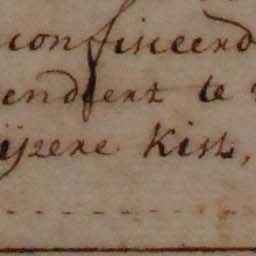 confisceerd
endeert te
ijzere Kist,